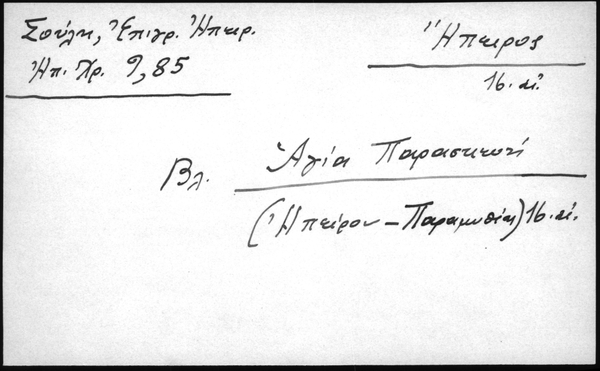 Σούλη, Ἐπιγρ. Ἠπειρ.
Ἠπ. Χρ. 9, 85
Ἤπειρος
16. αἰ.
Βλ. Ἁγία Παρασκευή
(Ἠπείρου – Παραμυθία) 16. αἰ.